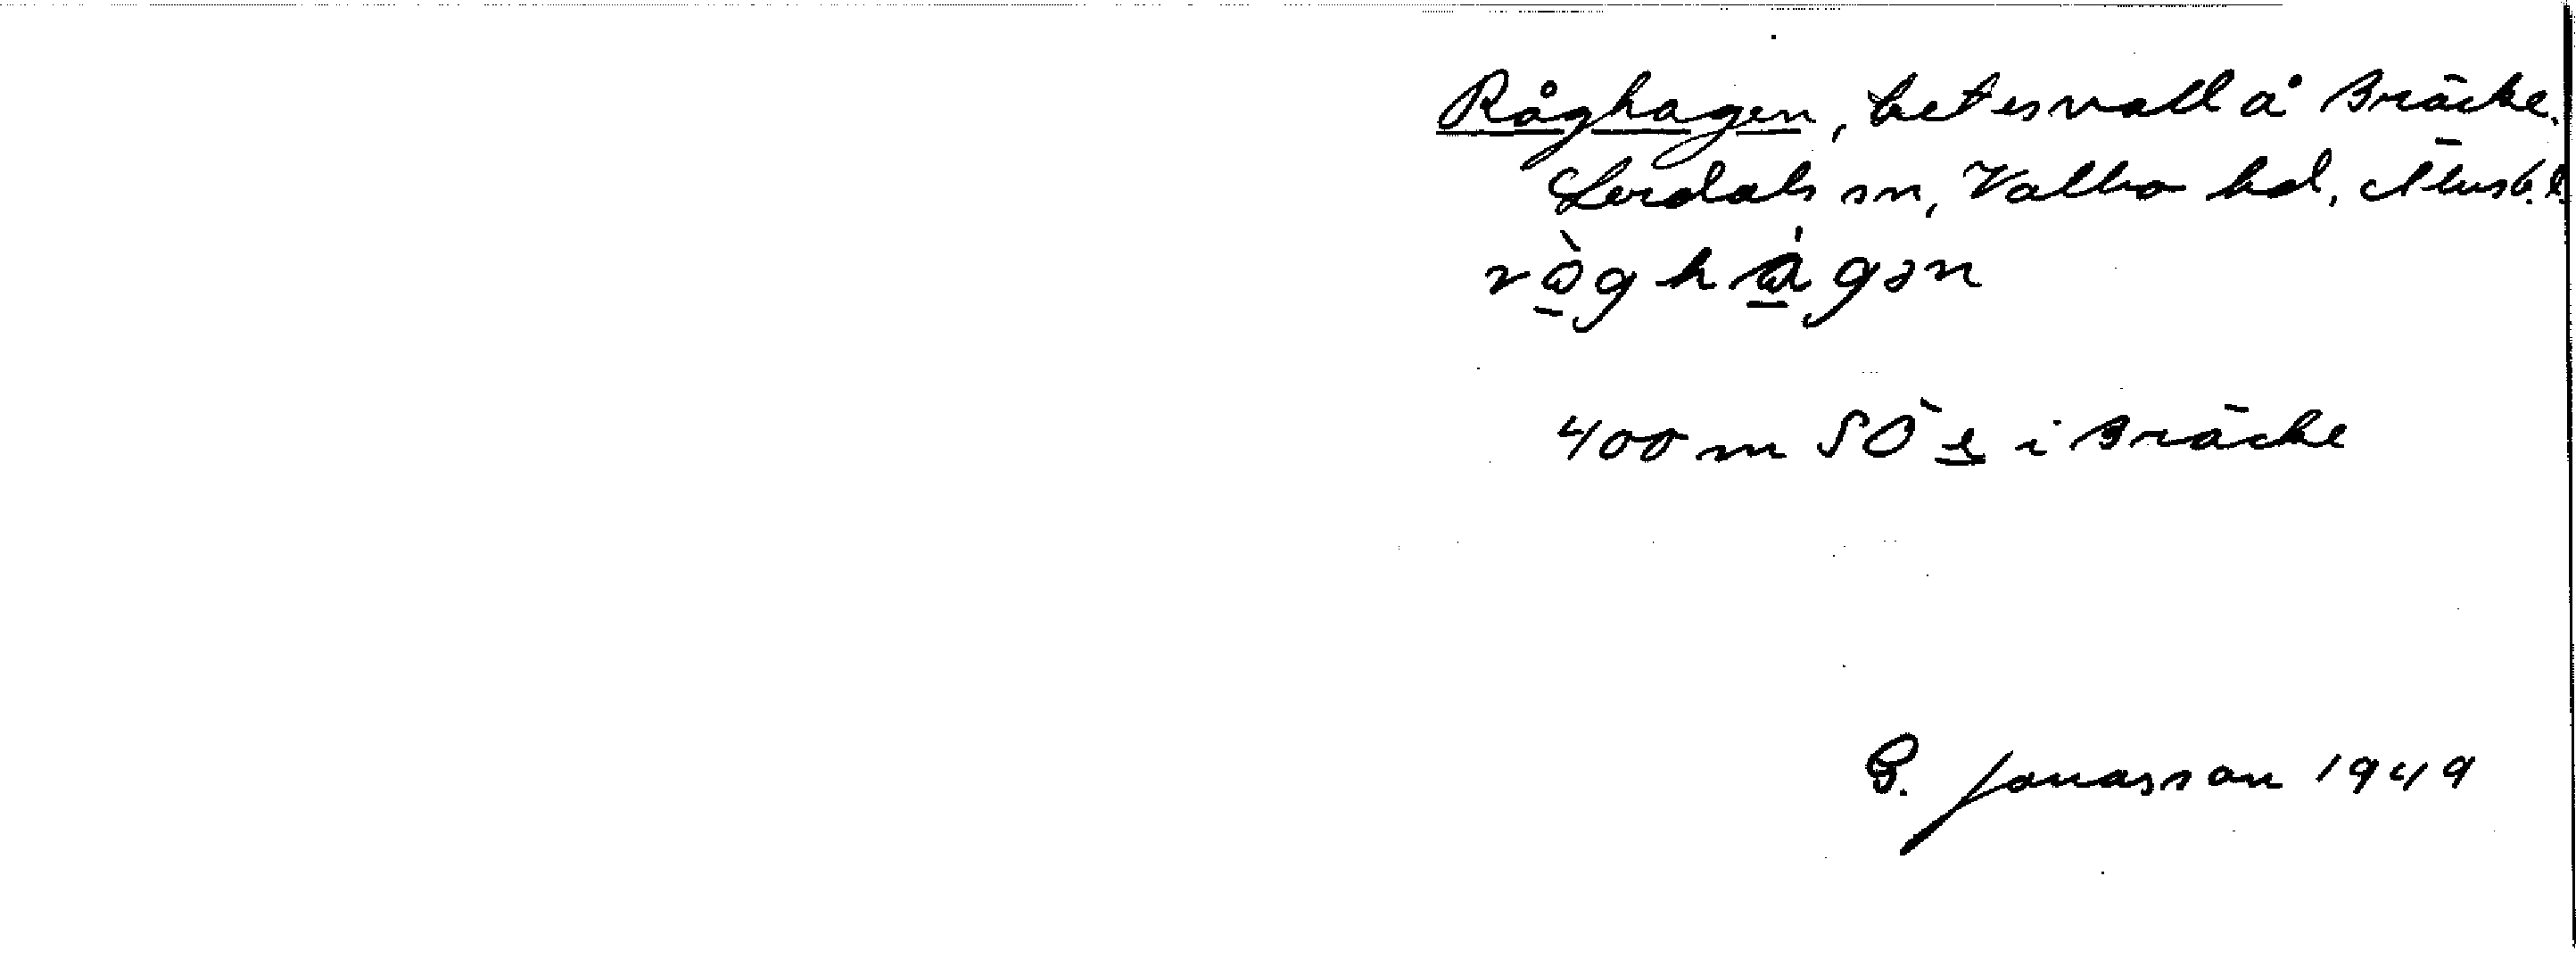 Råghagen, betesvall å Bräcke,
Lerdals sn, Valbo hd, Älvsb. l.
rå̀ghàgən
400 m SÖ e i Bräcke
G. Jonasson 1949